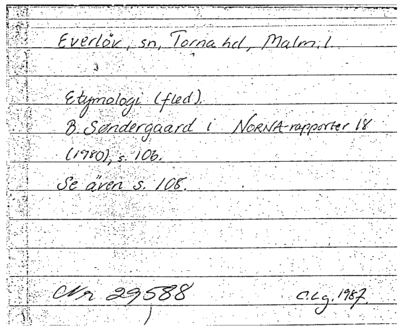 Everlöv, sn, Torna hd, Malm. l.
Etymologi (fled).
B. Søndergaard i NORNA-rapporter 18
(1980), s. 106.
Se även s. 108.
Nr 29588
C. Lg. 1987.